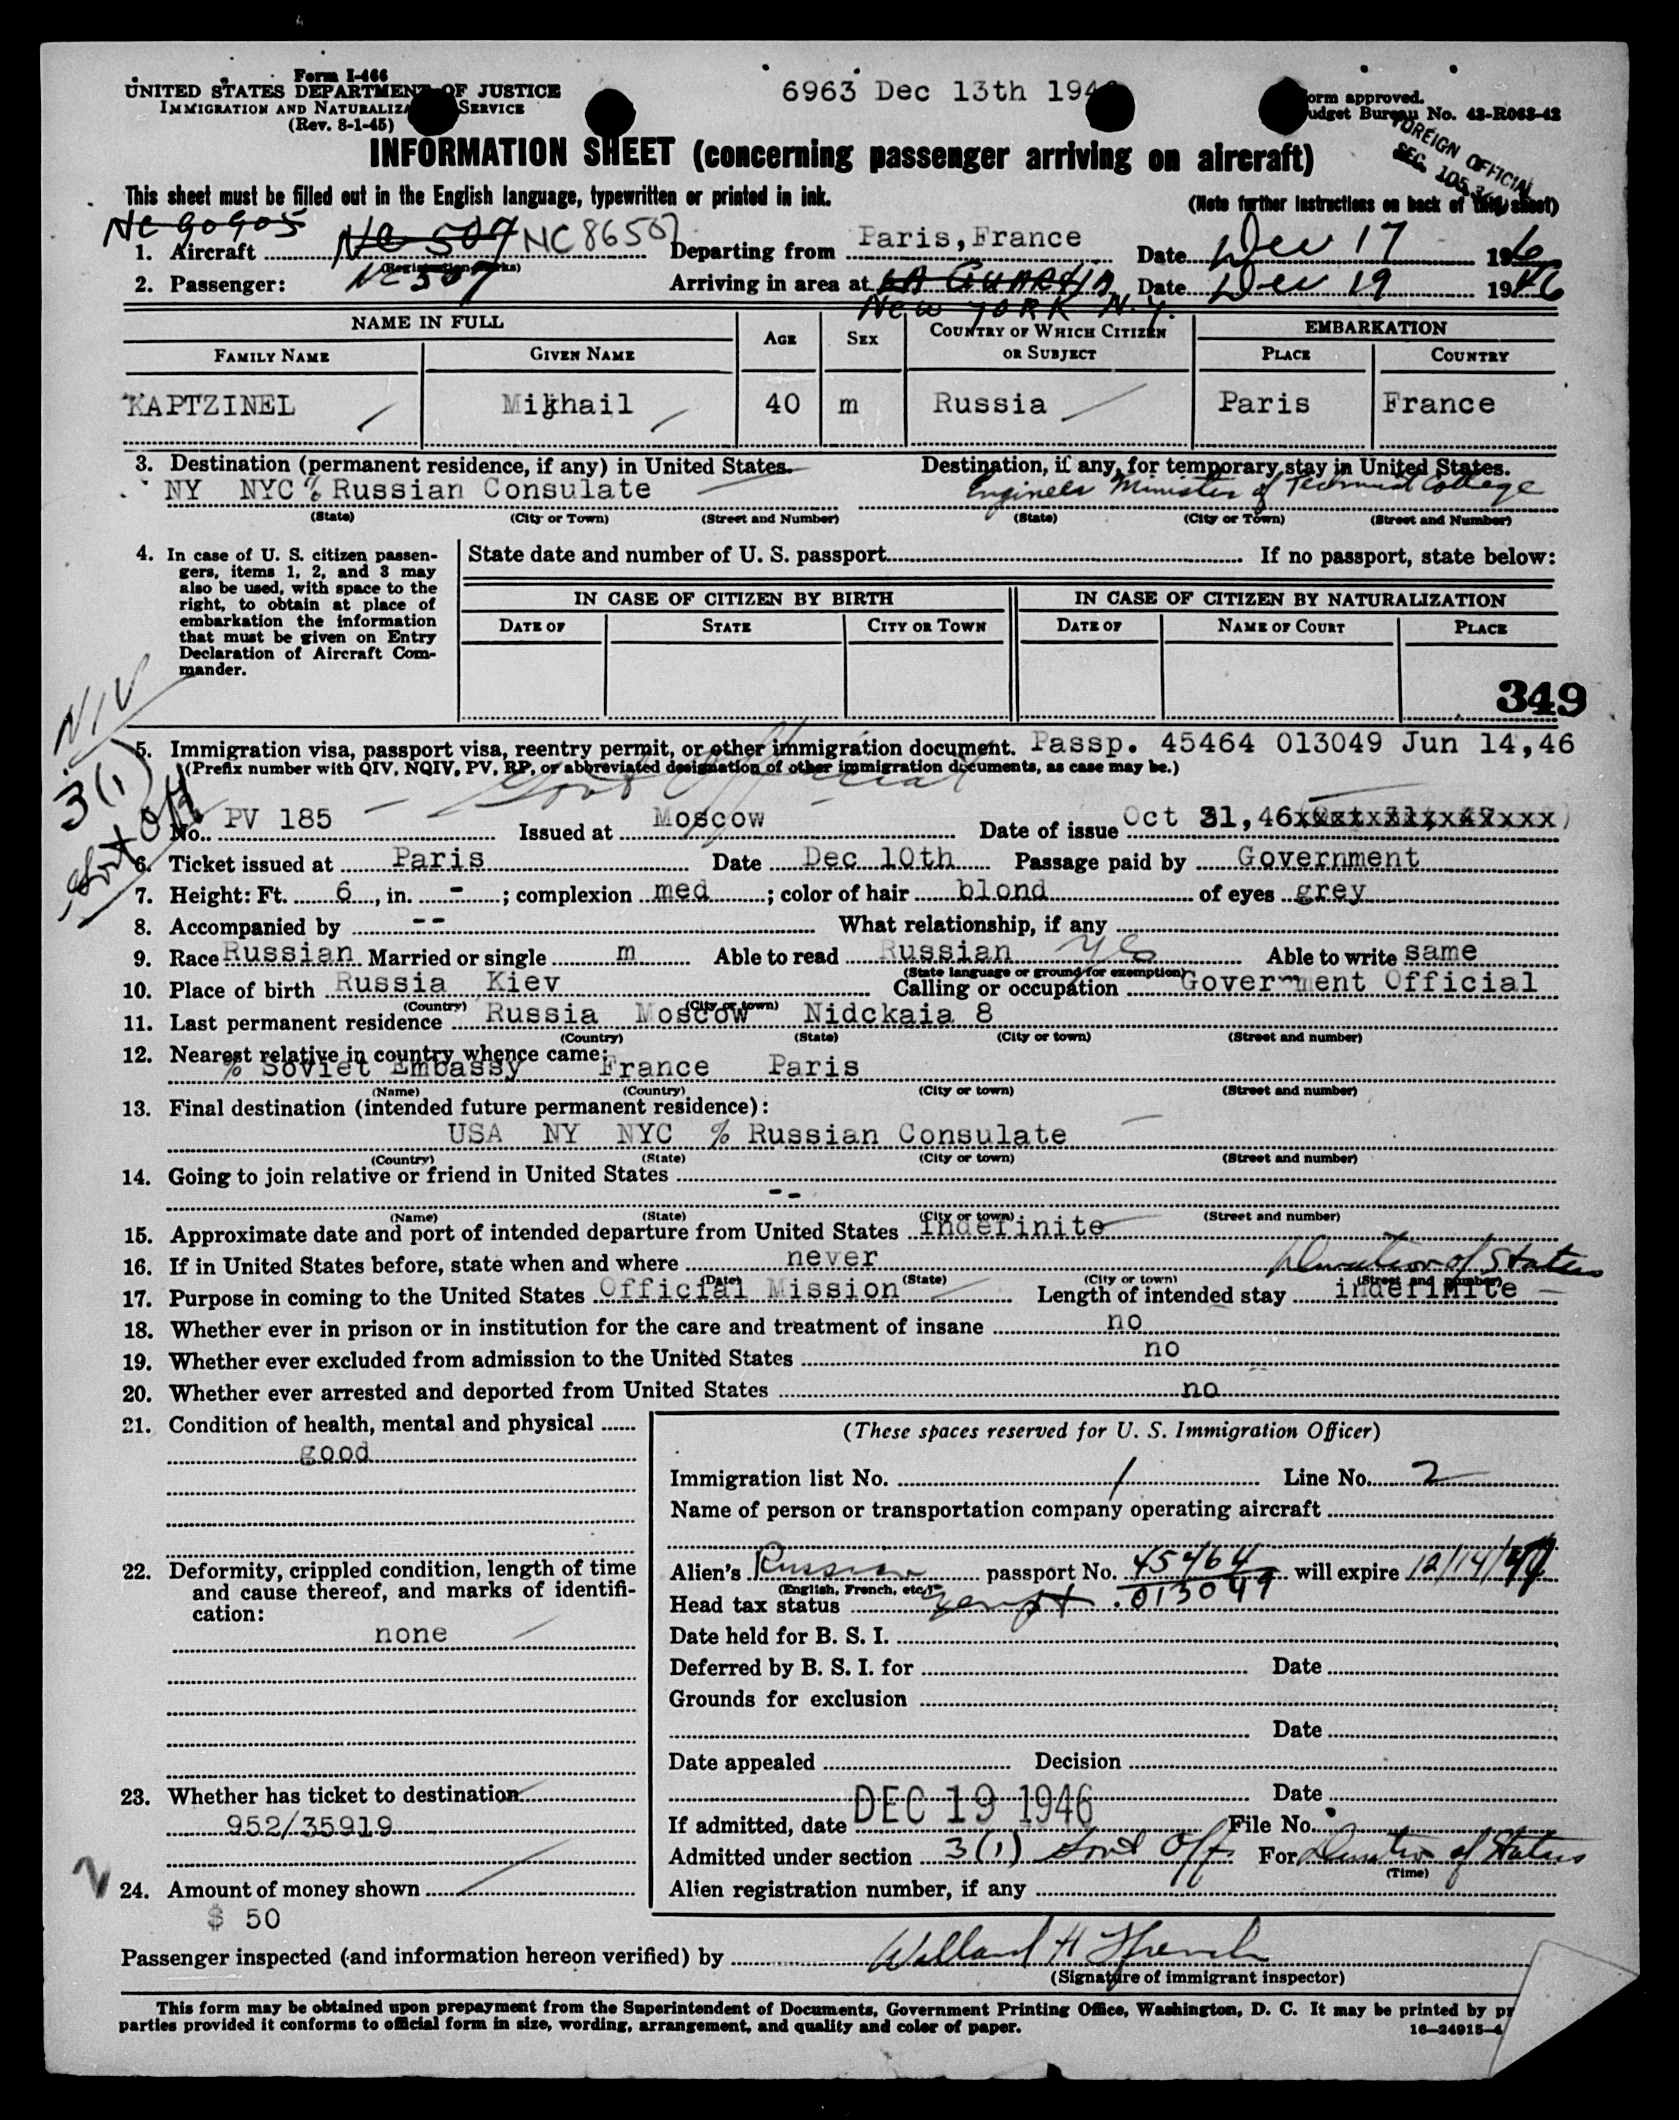 Form I-466
UNITED STATES DEPARTMENT OF JUSTICE
IMMIGRATION AND NATURALIZA SERVICE
(Rev. 8-1-45)
6963 Dec 13th 194
orm approved.
udget Bureau No. 43-R063-42
FOREIGN OFFICIAL
SEC. 105.3
INFORMATION SHEET (concerning passenger arriving on aircraft)
This sheet must be filled out in the English language, typewritten or printed in ink.
(Note further instructions on back of this sheet)
NC 90905
1. Aircraft NC 507 NC 86507 Departing from Paris, France Date Dec 17 1946
(Registration marks)
2. Passenger: NC 507 Arriving in area at LA GUARDIA Date Dec 19 1946
NEW YORK N.Y.
NAME IN FULL AGE SEX COUNTRY OF WHICH CITIZEN OR SUBJECT EMBARKATION
FAMILY NAME GIVEN NAME PLACE COUNTRY
KAPTZINEL Mikhail 40 m Russia Paris France
3. Destination (permanent residence, if any) in United States. Destination, if any, for temporary stay in United States.
NY NYC % Russian Consulate Engineer Minister of College
(State) (City or Town) (Street and Number) (State) (City or Town) (Street and Number)
4. In case of U. S. citizen passen-
gers, items 1, 2, and 3 may
also be used, with space to the
right, to obtain at place of
embarkation the information
that must be given on Entry
Declaration of Aircraft Com-
mander.
State date and number of U. S. passport If no passport, state below:
IN CASE OF CITIZEN BY BIRTH IN CASE OF CITIZEN BY NATURALIZATION
DATE OF STATE CITY OR TOWN DATE OF NAME OF COURT PLACE
349
NIV
3(1)
Govt Off
5. Immigration visa, passport visa, reentry permit, or other immigration document. Passp. 45464 013049 Jun 14,46
(Prefix number with QIV, NQIV, PV, RP, or abbreviated designation of other immigration documents, as case may be.)
Govt Official
No. PV 185 Issued at Moscow Date of issue Oct 31,46
6. Ticket issued at Paris Date Dec 10th Passage paid by Government
7. Height: Ft. 6, in. - ; complexion med ; color of hair blond of eyes grey
8. Accompanied by -- What relationship, if any
9. Race Russian Married or single m Able to read Russian yes Able to write same
(State language or ground for exemption)
10. Place of birth Russia Kiev Calling or occupation Government Official
(Country) (City or town)
11. Last permanent residence Russia Moscow Nidckaia 8
(Country) (State) (City or town) (Street and number)
12. Nearest relative in country whence came:
% Soviet Embassy France Paris
(Name) (Country) (City or town) (Street and number)
13. Final destination (intended future permanent residence):
USA NY NYC % Russian Consulate
(Country) (State) (City or town) (Street and number)
14. Going to join relative or friend in United States
--
(Name) (State) (City or town) (Street and number)
15. Approximate date and port of intended departure from United States Indefinite
16. If in United States before, state when and where never Duration of Status
(Date) (State) (City or town) (Street and number)
17. Purpose in coming to the United States Official Mission Length of intended stay indefinite
18. Whether ever in prison or in institution for the care and treatment of insane no
19. Whether ever excluded from admission to the United States no
20. Whether ever arrested and deported from United States no
21. Condition of health, mental and physical
good
22. Deformity, crippled condition, length of time
and cause thereof, and marks of identifi-
cation:
none
23. Whether has ticket to destination
952/35919
24. Amount of money shown
$ 50
(These spaces reserved for U. S. Immigration Officer)
Immigration list No. 1 Line No. 2
Name of person or transportation company operating aircraft
Alien's Russian passport No. 45464 will expire 12/14/47
(English, French, etc.)
013049
Head tax status Exempt
Date held for B. S. I.
Deferred by B. S. I. for Date
Grounds for exclusion
Date
Date appealed Decision
Date
If admitted, date DEC 19 1946 File No.
Admitted under section 3(1) Govt Off For Duration of Status
(Time)
Alien registration number, if any
Passenger inspected (and information hereon verified) by Willard H
(Signature of immigrant inspector)
This form may be obtained upon prepayment from the Superintendent of Documents, Government Printing Office, Washington, D. C. It may be printed by pr
parties provided it conforms to official form in size, wording, arrangement, and quality and color of paper.
16—24915-4